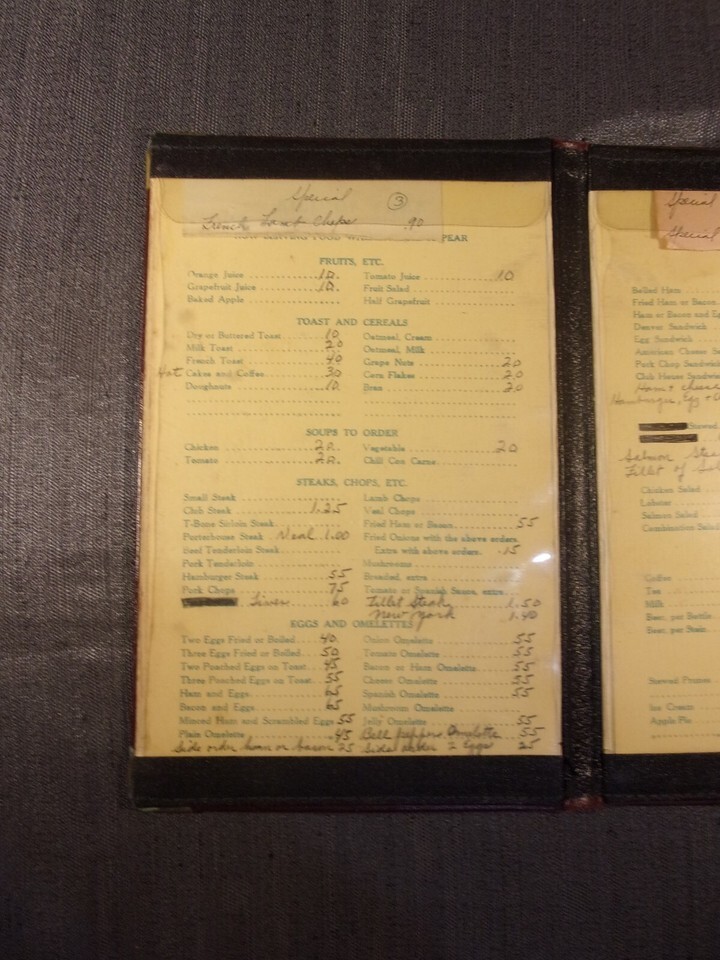 Special ③
French Lamb Chops .90
PEAR
FRUITS, ETC.
Orange Juice 10. Tomato Juice 10
Grapefruit Juice 10. Fruit Salad
Baked Apple Half Grapefruit
TOAST AND CEREALS
Dry or Buttered Toast 10. Oatmeal, Cream
Milk Toast 20 Oatmeal, Milk
French Toast 40 Grape Nuts 20
Hot Cakes and Coffee 30 Corn Flakes 20
Doughnuts 10. Bran 20
SOUPS TO ORDER
Chicken 20. Vegetable 20
Tomato 20. Chili Con Carne
STEAKS, CHOPS, ETC.
Small Steak Lamb Chops
Club Steak 1.25 Veal Chops
T-Bone Sirloin Steak Fried Ham or Bacon 55
Porterhouse Steak Veal 1.00 Fried Onions with the above orders.
Beef Tenderloin Steak Extra with above orders. .15
Pork Tenderloin Mushrooms
Hamburger Steak 55 Breaded, extra
Pork Chops 75 Tomato or Spanish Sauce, extra
Liver 60 Fillet Steak 1.50
New York 1.40
EGGS AND OMELETTES
Two Eggs Fried or Boiled 40 Onion Omelette 55
Three Eggs Fried or Boiled 50 Tomato Omelette 55
Two Poached Eggs on Toast 45 Bacon or Ham Omelette 55
Three Poached Eggs on Toast 55 Cheese Omelette 55
Ham and Eggs 65 Spanish Omelette 55
Bacon and Eggs 65 Mushroom Omelette
Minced Ham and Scrambled Eggs 55 Jelly Omelette 55
Plain Omelette 45 Bell pepper Omelette 55
Side order ham or bacon 25 Side order 2 Eggs 25
Special
Special
Boiled Ham
Fried Ham or Bacon
Ham or Bacon and
Denver Sandwich
Egg Sandwich
American Cheese
Pork Chop Sandwich
Club House
Ham + cheese
Hamburger, Egg +
Stewed
Salmon
Fillet of
Chicken Salad
Lobster
Salmon Salad
Combination
Coffee
Tea
Milk
Beer, per Bottle
Beer, per Stein
Stewed Prunes
Ice Cream
Apple Pie